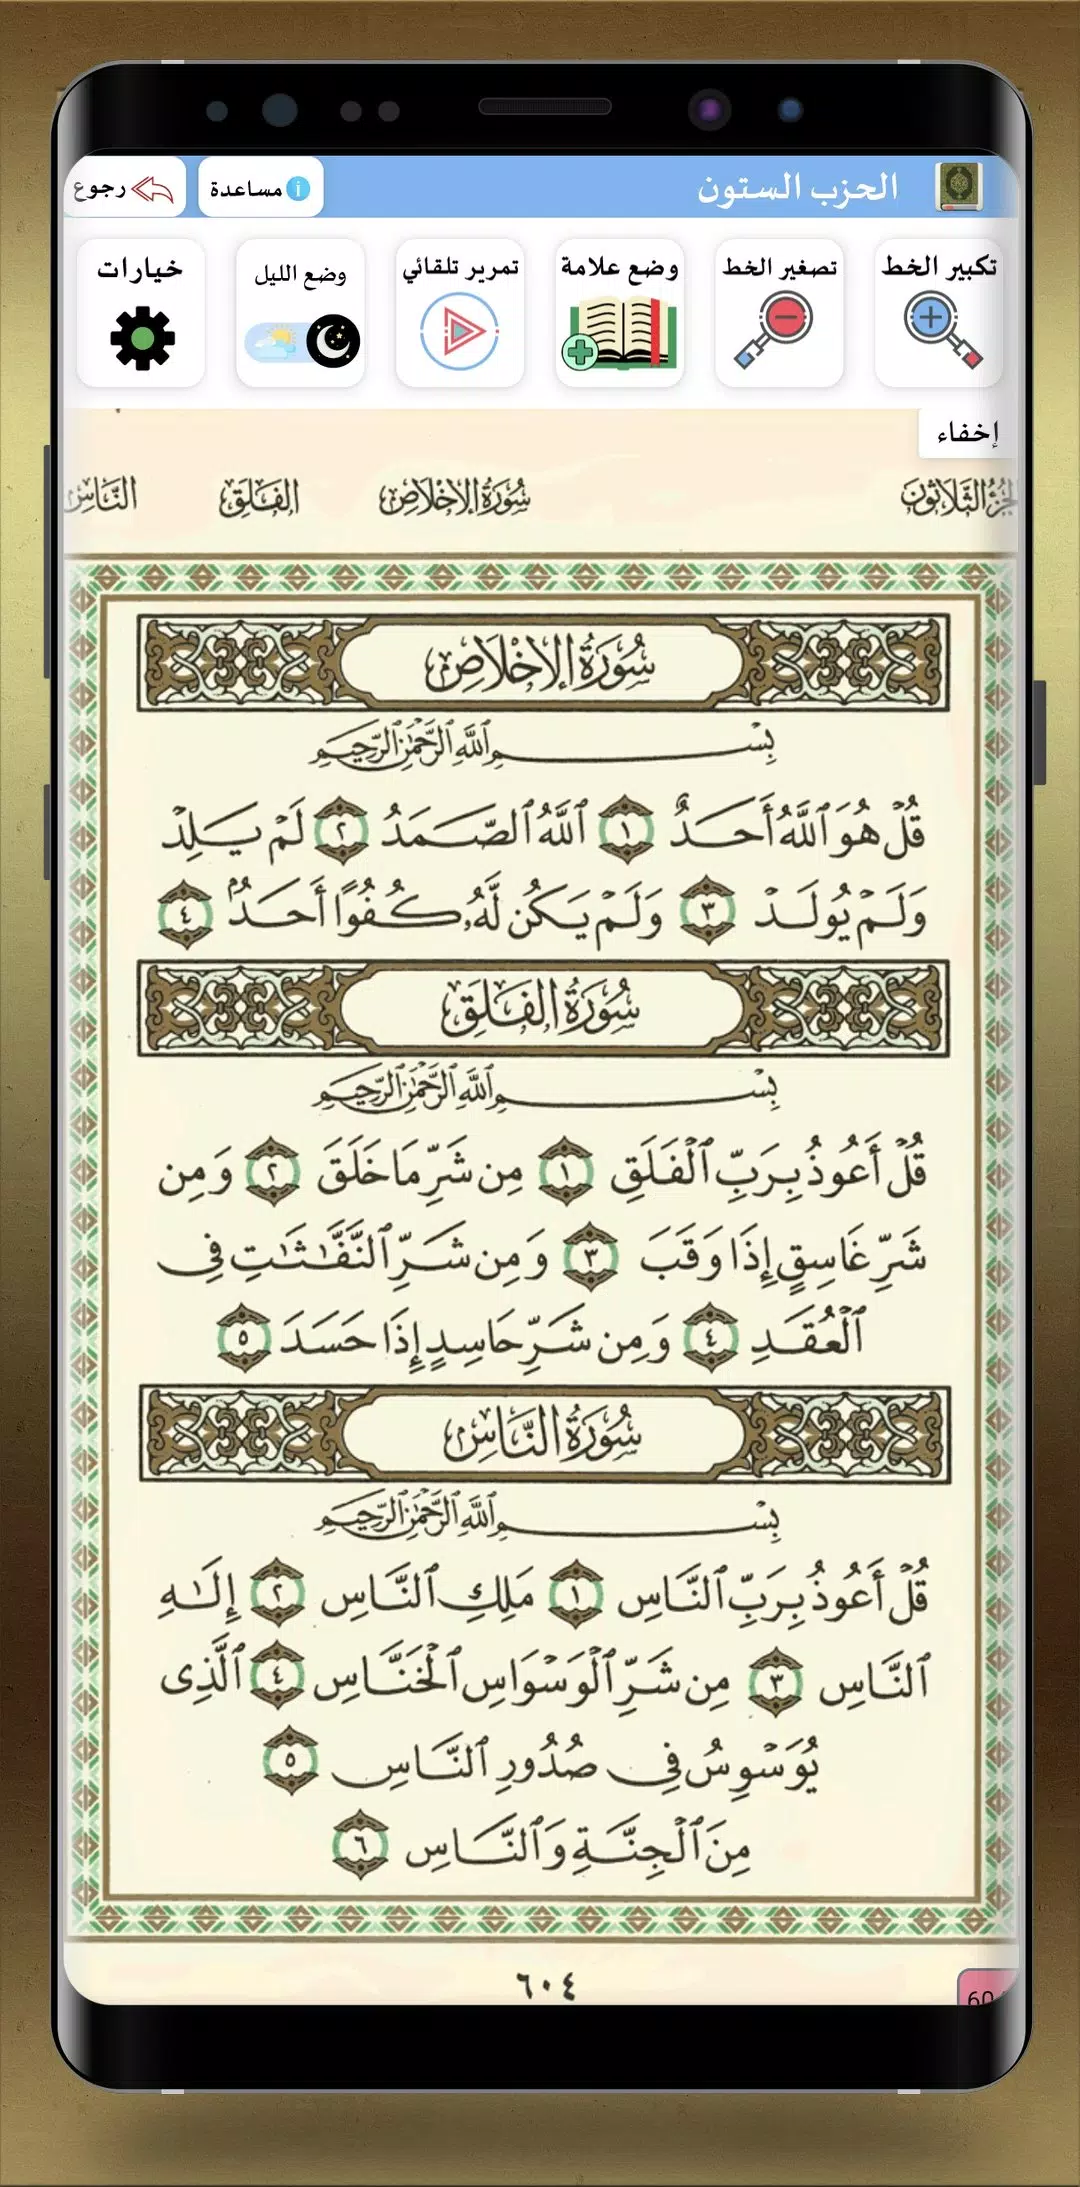 الحزب الستون
مساعدة
رجوع
تكبير الخط
تصغير الخط
وضع علامة
تمرير تلقائي
وضع الليل
خيارات
إخفاء
الجُزْءُ الثَّلَاثُونَ سُورَةُ الإِخْلَاصِ الفَلَقِ النَّاسِ
سُورَةُ الإِخْلَاصِ
بِسْمِ ٱللَّهِ ٱلرَّحْمَٰنِ ٱلرَّحِيمِ
قُلْ هُوَ ٱللَّهُ أَحَدٌ ١ ٱللَّهُ ٱلصَّمَدُ ٢ لَمْ يَلِدْ
وَلَمْ يُولَدْ ٣ وَلَمْ يَكُن لَّهُۥ كُفُوًا أَحَدٌۢ ٤
سُورَةُ الفَلَقِ
بِسْمِ ٱللَّهِ ٱلرَّحْمَٰنِ ٱلرَّحِيمِ
قُلْ أَعُوذُ بِرَبِّ ٱلْفَلَقِ ١ مِن شَرِّ مَا خَلَقَ ٢ وَمِن
شَرِّ غَاسِقٍ إِذَا وَقَبَ ٣ وَمِن شَرِّ ٱلنَّفَّٰثَٰتِ فِى
ٱلْعُقَدِ ٤ وَمِن شَرِّ حَاسِدٍ إِذَا حَسَدَ ٥
سُورَةُ النَّاسِ
بِسْمِ ٱللَّهِ ٱلرَّحْمَٰنِ ٱلرَّحِيمِ
قُلْ أَعُوذُ بِرَبِّ ٱلنَّاسِ ١ مَلِكِ ٱلنَّاسِ ٢ إِلَٰهِ
ٱلنَّاسِ ٣ مِن شَرِّ ٱلْوَسْوَاسِ ٱلْخَنَّاسِ ٤ ٱلَّذِى
يُوَسْوِسُ فِى صُدُورِ ٱلنَّاسِ ٥
مِنَ ٱلْجِنَّةِ وَٱلنَّاسِ ٦
٦٠٤